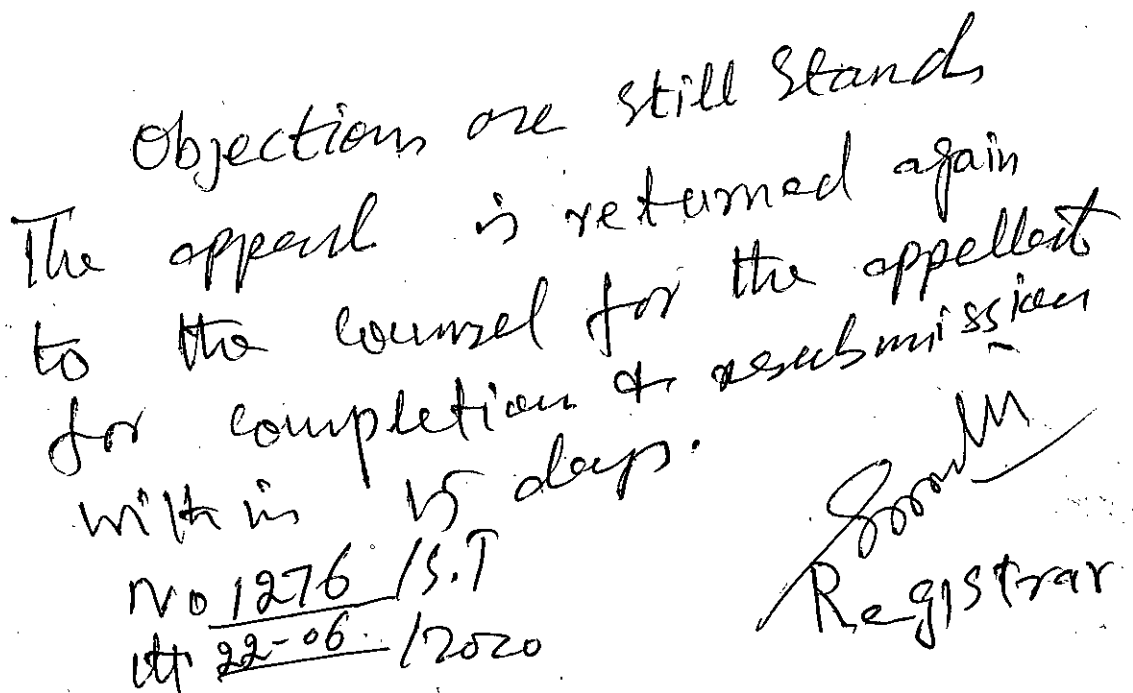 Objections are still Stands
The appeal is returned again
to the counsel for the appellant
for completion & resubmission
within 15 days.
No 1276 /S.T
dt 22-06. /2020
Registrar